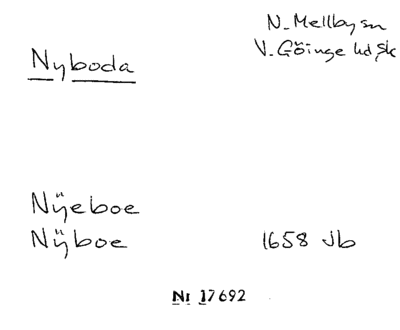 N. Mellby sn
Nyboda
V. Göinge hd Sk
Nÿeboe
Nÿboe 1658 Jb
Nr 17692